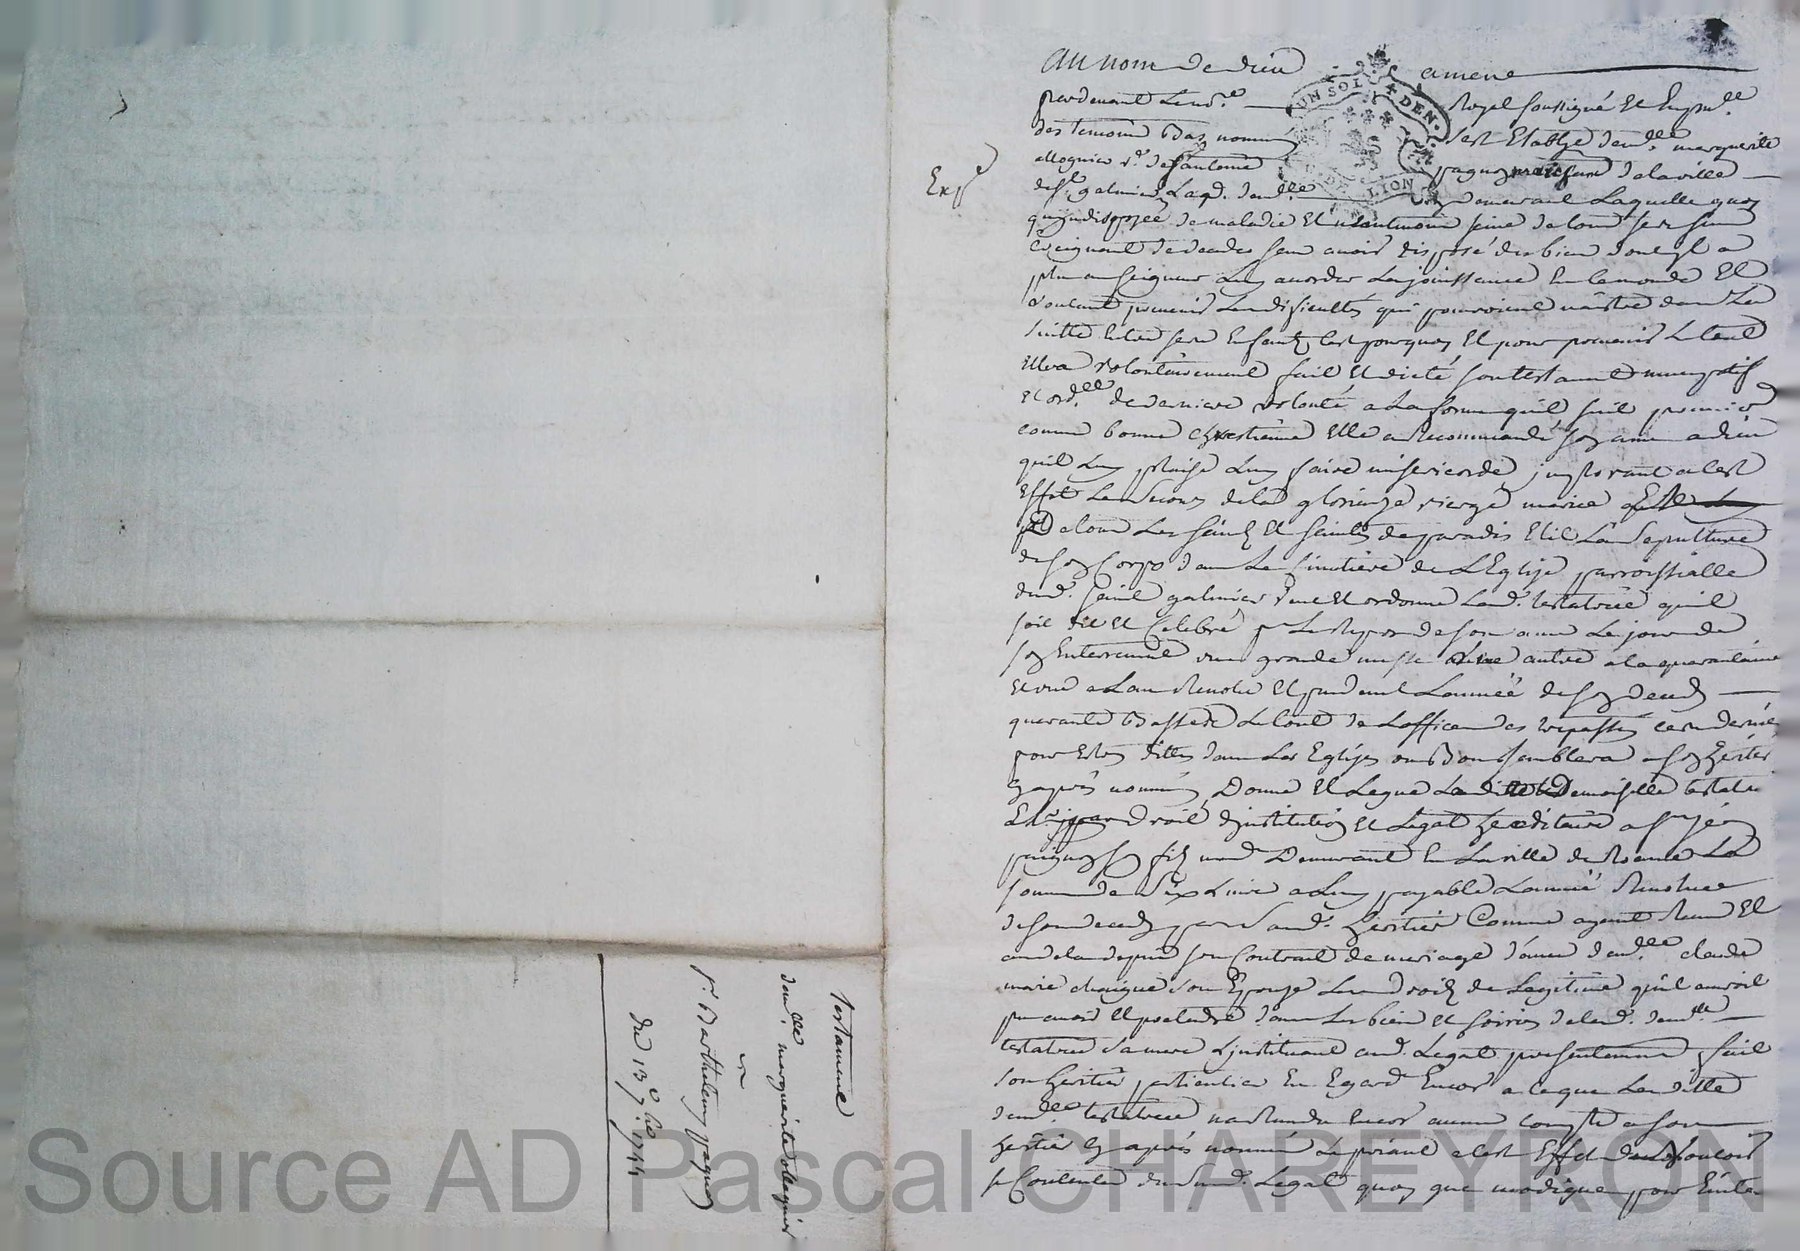 Au nom de dieu amene
pardevant Le no.re Royal soussigné Et En pn.ce
des temoins Bas nommés s'est Etablye dem.lle marguerite
allognier v.e de s.r antoine pagnon de la ville
de S.t galmier Laq. dem.lle y demeurant Laquelle quoy
qu'indisposée de maladie Et neantmoins seine de tous ses sens
Craignant de deceder sans avoir disposé des biens dont il a
plu au seigneur Luy accorder La jouissance En ce monde Et
voulant prevenir Les dificultés qui pourroient naistre dans La
suitte Entre ses Enfants C'est pourquoy Et pour prevenir Le tout
Elle a volontairement fait Et dicté son testament nuncupatif
Et ord.ce de derniere volonté a La forme qu'il suit premier.
comme bonne chrestienne Elle a Recommandé son ame a dieu
qu'il Luy plaise Luy faire misericorde, implorant a cest
Effet Le secours de la glorieuse vierge marie
Et a tous Les saints Et saintes de paradis Elit La sepulture
de son Corps dans Le simetiere de L'Eglise parroissialle
dud. saint galmier veut Et ordonne Lad. testatrice qu'il
soit dit Et Celebré p.r Le Repos de son ame Le jour de
son Enterrement une grande messe une autre a la quarantaine
Et une a L'an Revolu Et pendant L'année de son deceds
quarante Basses Le tout de L'office des trepassés ces dernieres
pour Estre dittes dans Les Eglises ou Bon semblera a son heritier
cy apres nommé, Donne Et Legue La ditte Demoiselle testatrice
Et par Droit d'institution Et Legat hereditaire a s.r jean
pagnon son fils md. Demeurant En La ville de Roanne La
somme de six Livres a Luy payable L'année Revolue
de son deceds par sond. heritier Comme ayant Receu Et
audela depuis son Contrat de mariage d'avec dem.lle claude
marie chaigne son Epouse Les droits de Legitime qu'il auroit
pu avoir Et pretendre dans Les biens Et hoiries de lad. dem.lle
testatrice sa mere L'instituant aud. Legat presentement fait
son heritier particulier En Egard Encor a ce que La ditte
dem.lle testatrice n'a Rendu Encor aucun compte a son
heritier cy aprés nommé Le priant a cest Effet de vouloir
se Contenter dud. Legat quoy que modique pour Eviter
Exp.é
testament
dem.lle marguerite allognier
v.e
s.r Barthelemy pagnon
du 13.e 7.bre 1744
Source AD Pascal CHAREYRON
UN SOL 4 DEN.
G. DE LION